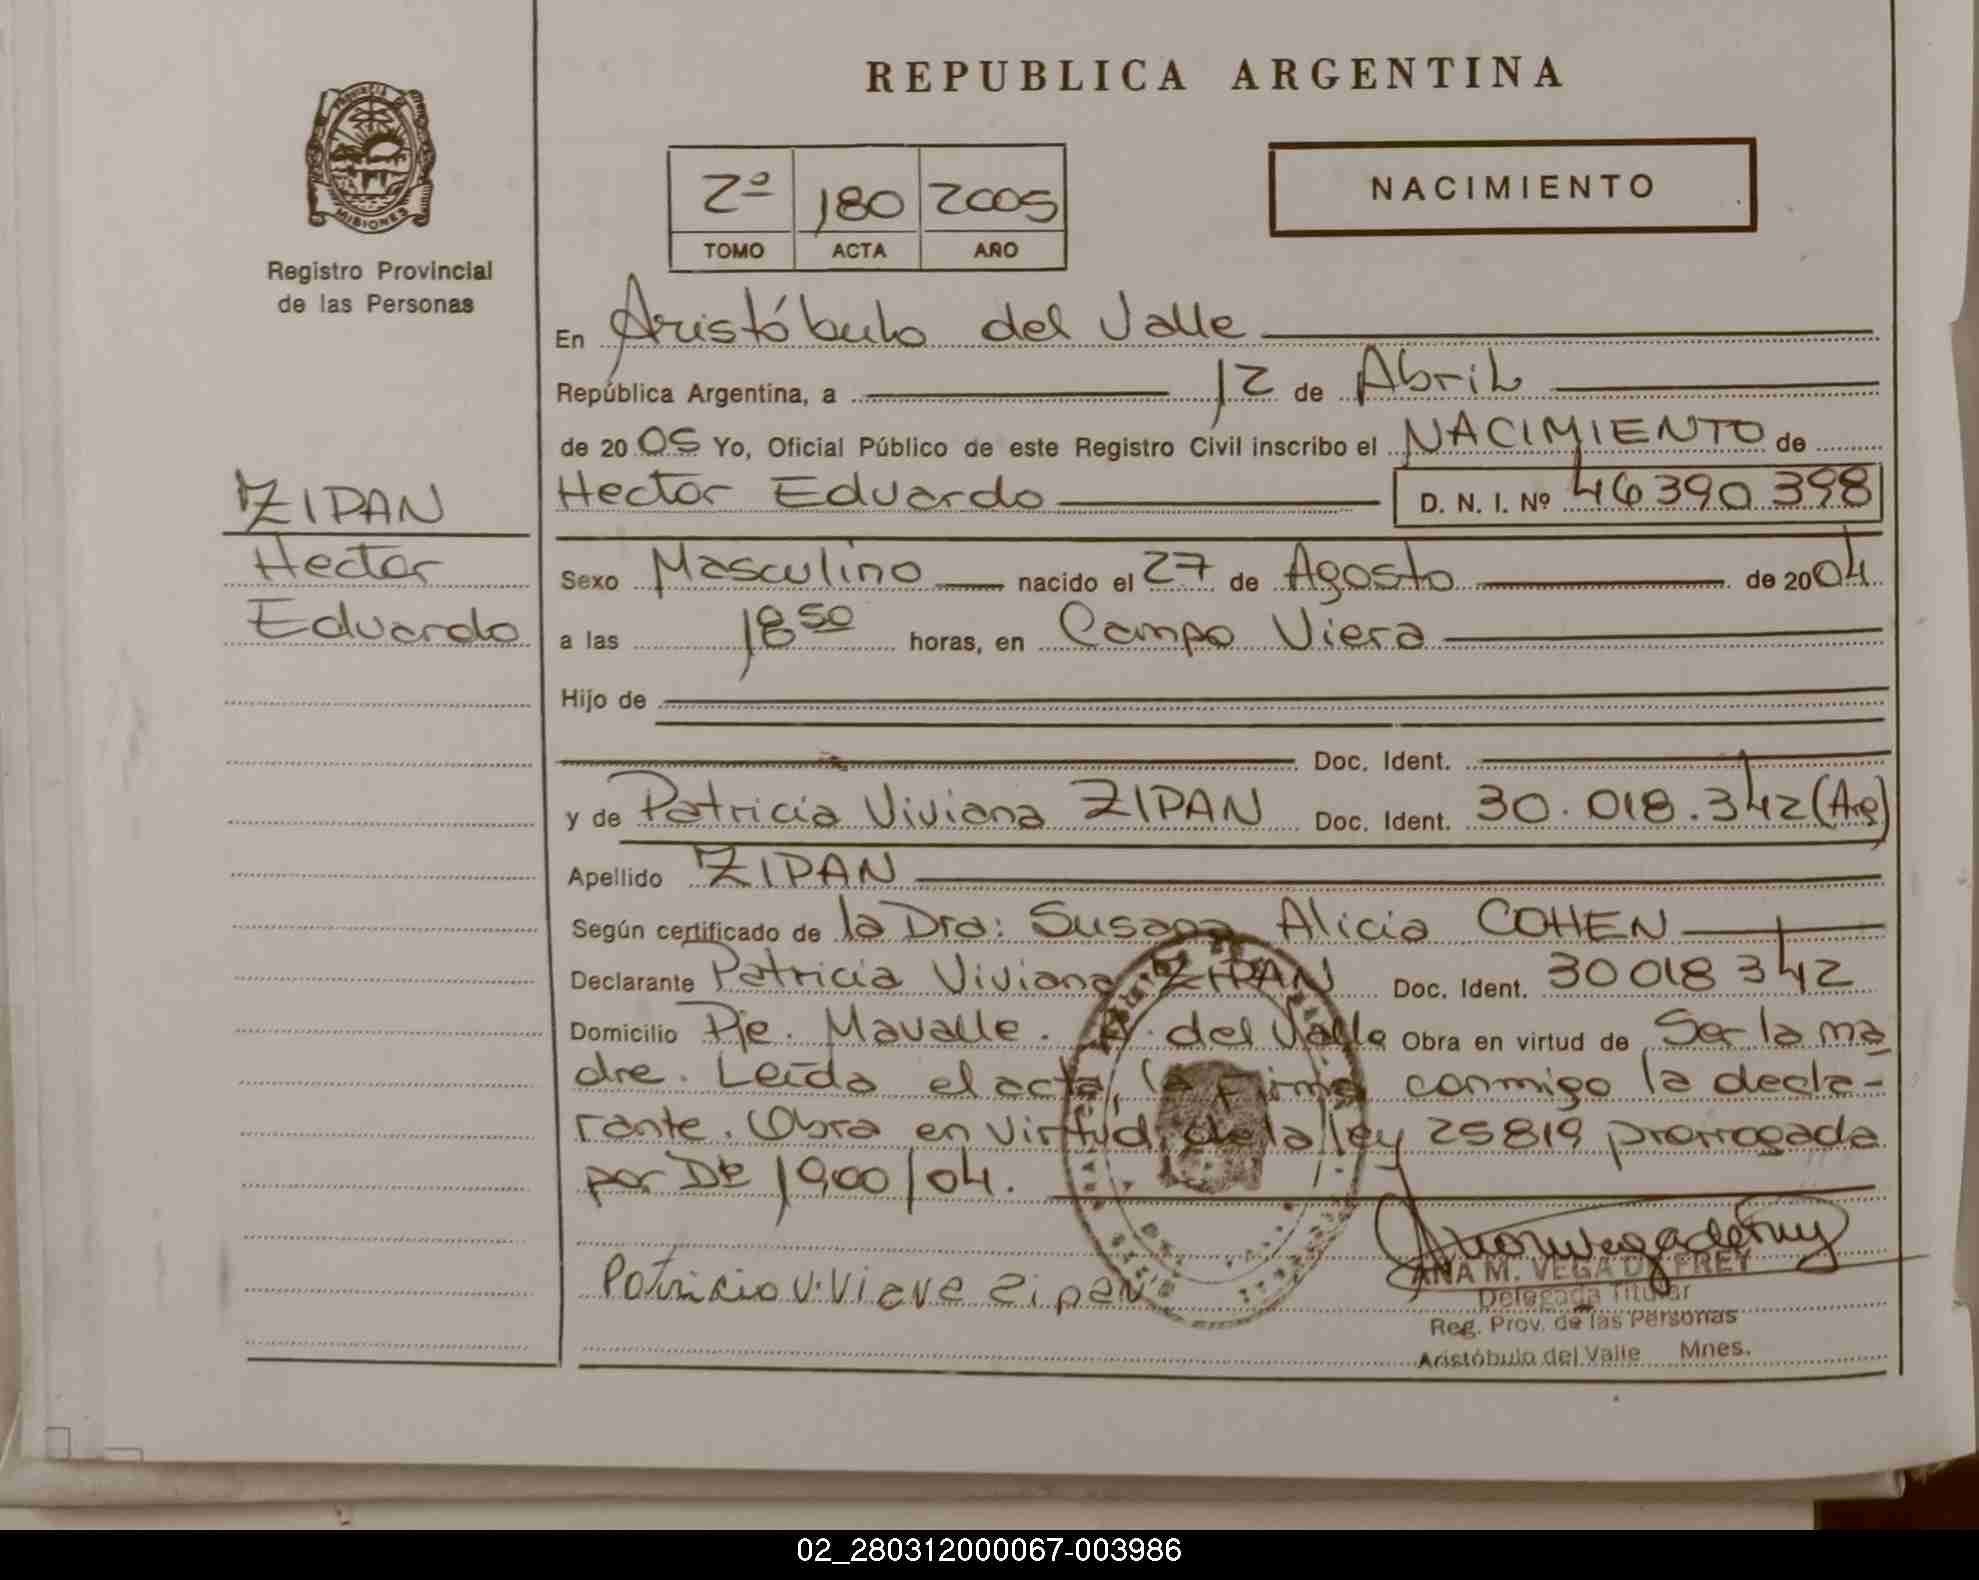 REPUBLICA ARGENTINA
PROVINCIA DE
MISIONES
Registro Provincial
de las Personas
NACIMIENTO
2º 180 2005
TOMO ACTA AÑO
En Aristóbulo del Valle
República Argentina, a 12 de Abril
de 2005 Yo, Oficial Público de este Registro Civil inscribo el NACIMIENTO de
Hector Eduardo D. N. I. Nº 46390398
ZIPAN
Hector
Eduardo
Sexo Masculino nacido el 27 de Agosto de 2004
a las 18 50 horas, en Campo Viera
Hijo de
Doc. Ident.
y de Patricia Viviana ZIPAN Doc. Ident. 30.018.342 (Arg)
Apellido ZIPAN
Según certificado de la Dra: Susana Alicia COHEN
Declarante Patricia Viviana ZIPAN Doc. Ident. 30 018 342
Domicilio Pje. Mavalle. A. del Valle Obra en virtud de Ser la ma
dre. Leída el acta, la firma conmigo la decla-
rante. Obra en virtud de la ley 25819 prorrogada
por Dto 1900/04.
Patricia Viviana Zipan
ANA M. VEGA DE FREY
Delegada Titular
Reg. Prov. de las Personas
Aristóbulo del Valle Mnes.
02_280312000067-003986